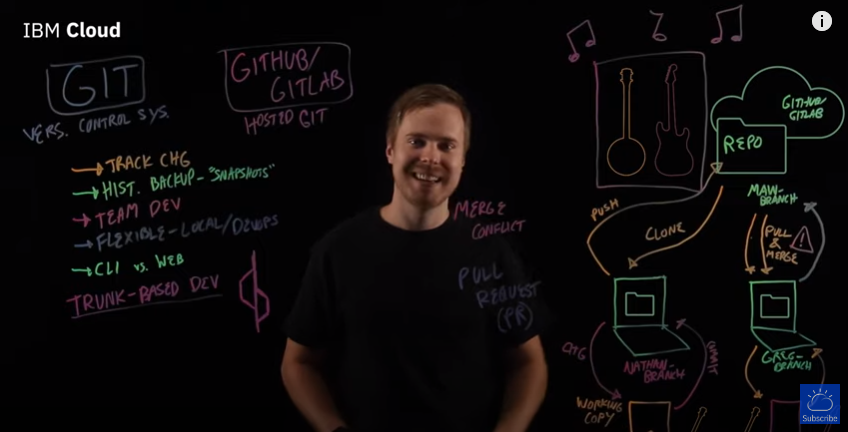 IBM Cloud
i
GIT
VERS. CONTROL SYS.
GITHUB/
GITLAB
HOSTED GIT
TRACK CHG
HIST. BACKUP - "SNAPSHOTS"
TEAM DEV
FLEXIBLE - LOCAL/DEVOPS
CLI vs. WEB
TRUNK-BASED DEV
MERGE
CONFLICT
PULL
REQUEST
(PR)
GITHUB/
GITLAB
REPO
MAIN-
BRANCH
PUSH
CLONE
PULL
&
MERGE
!
CHG
NATHAN-
BRANCH
COMMIT
WORKING
COPY
GREG-
BRANCH
Subscribe